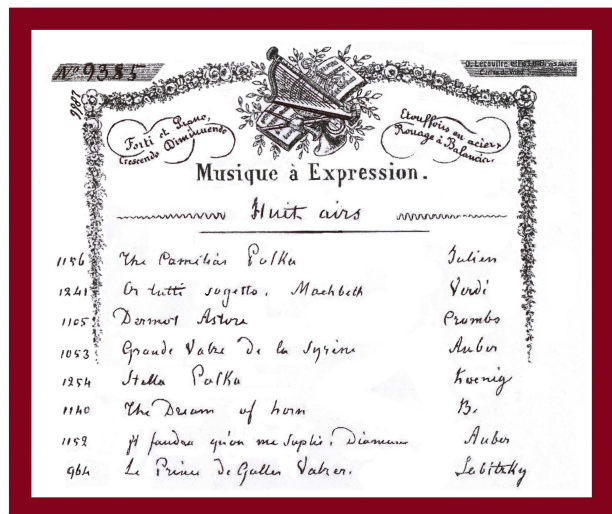 No 9385
D. Lecoultre
9387
Forti et Piano,
Crescendo Diminuendo
Etouffoirs en acier,
Rouage à Balancier.
Musique à Expression.
Huit airs
1156 The Camélias Polka Julien
1241 Or tutti sogetto. Machbeth Verdi
1105 Dermot Astore Crumbs
1053 Grande Valse De la Syrène Auber
1254 Stella Polka Koenig
1140 The Dream of horn B.
1152 faudra qu'on me Auber
964 Le Prince de Galles Valzer. Labitzky